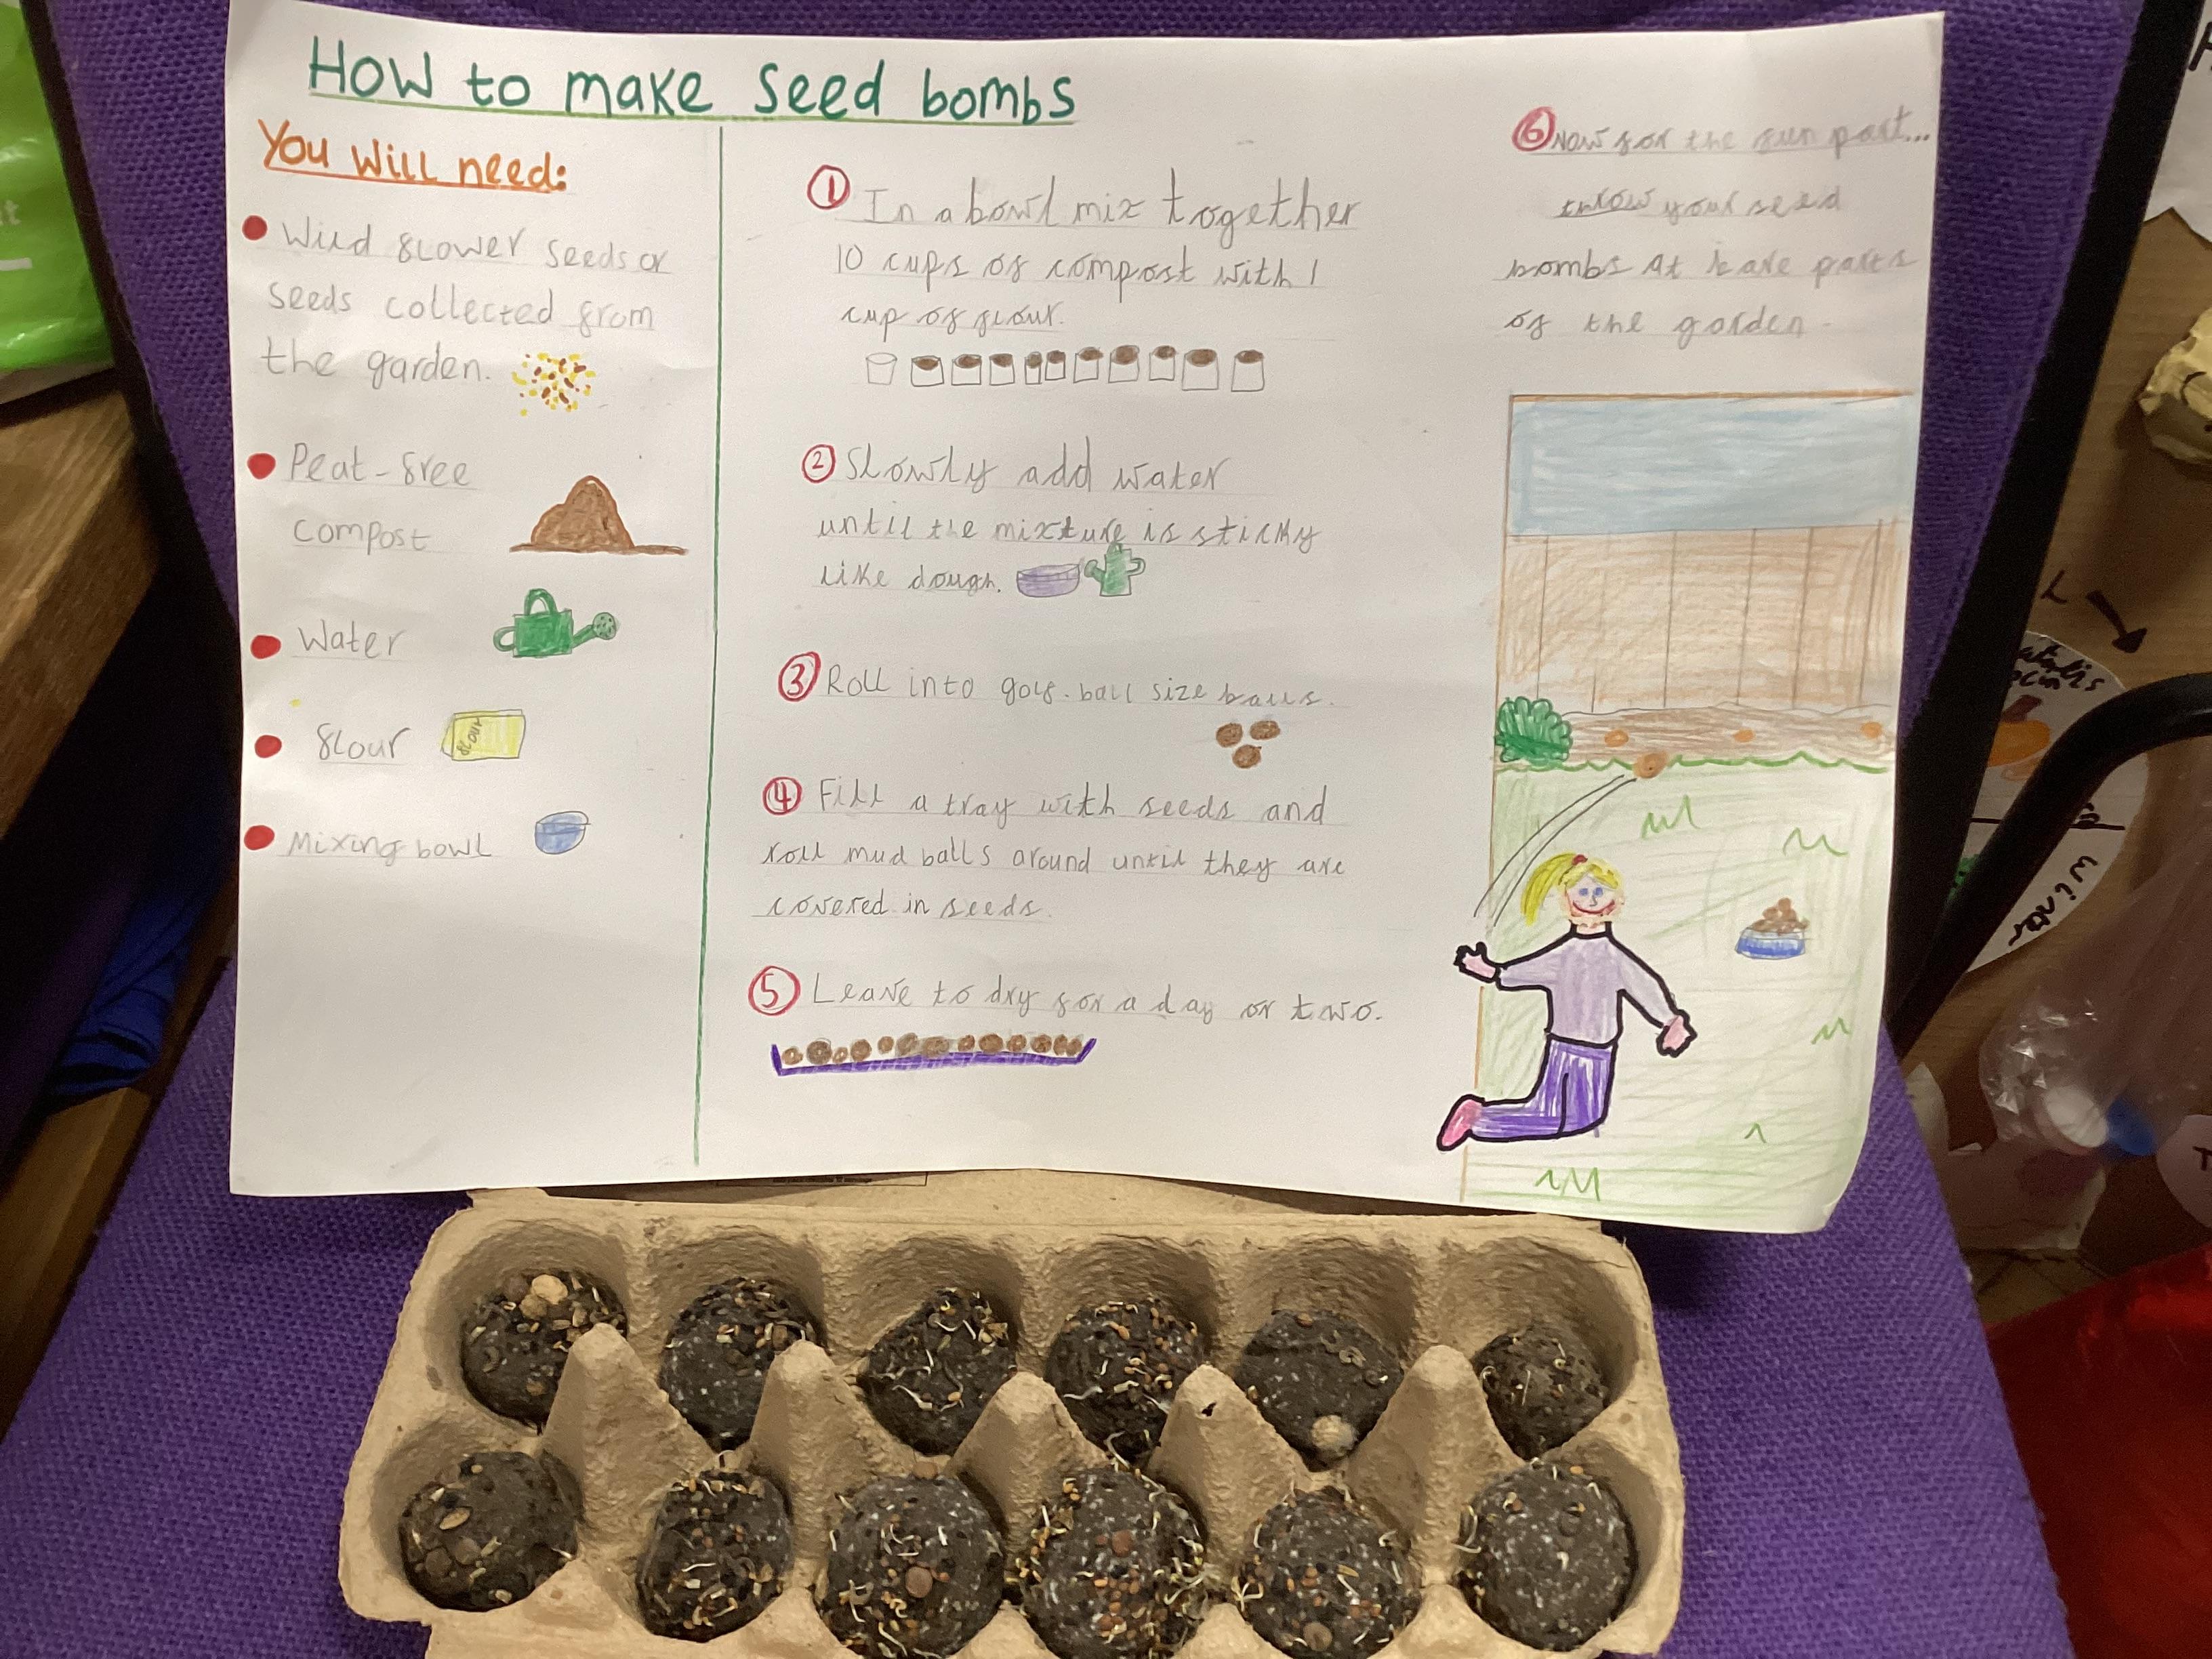 How to make seed bombs
You will need:
Wild flower seeds or
seeds collected from
the garden.
Peat-free
compost
Water
flour
flour
Mixing bowl
1 In a bowl mix together
10 cups of compost with 1
cup of flour.
2 Slowly add water
until the mixture is sticky
like dough.
3 Roll into golf-ball size balls.
4 Fill a tray with seeds and
roll mud balls around until they are
covered in seeds.
5 Leave to dry for a day or two.
6 Now for the fun part...
throw your seed
bombs At bare parts
of the garden.
winter